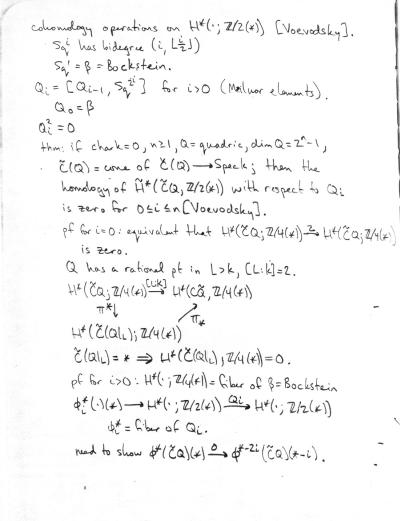 cohomology operations on H*(·; Z/2(*)) [Voevodsky].
Sq^i has bidegree (i, ⌊i/2⌋)
Sq^1 = β = Bockstein.
Q_i = [Q_{i-1}, Sq^{2^i}] for i>0 (Milnor elements).
Q_0 = β
Q_i^2 = 0
thm: if char k=0, n≥1, Q=quadric, dim Q=2^n-1,
C̃(Q) = cone of Č(Q) → Spec k; then the
homology of H̃*(C̃Q; Z/2(*)) with respect to Q_i
is zero for 0≤i≤n [Voevodsky].
pf for i=0: equivalent that H*(C̃Q; Z/4(*)) →^2 H*(C̃Q; Z/4(*))
is zero.
Q has a rational pt in L>k, [L:k]=2.
H*(C̃Q; Z/4(*)) →^{[L:k]} H*(C̃Q, Z/4(*))
π* ↓ ↗ π_*
H*(C̃(Q|_L); Z/4(*))
C̃(Q|_L) = * ⇒ H*(C̃(Q|_L); Z/4(*)) = 0.
pf for i>0: H*(·; Z/4(*)) = fiber of β = Bockstein
φ_i^*(·)(*) → H*(·; Z/2(*)) →^{Q_i} H*(·; Z/2(*))
φ_i^* = fiber of Q_i.
need to show φ*(C̃Q)(*) →^0 φ^{*-2i}(C̃Q)(*-i).